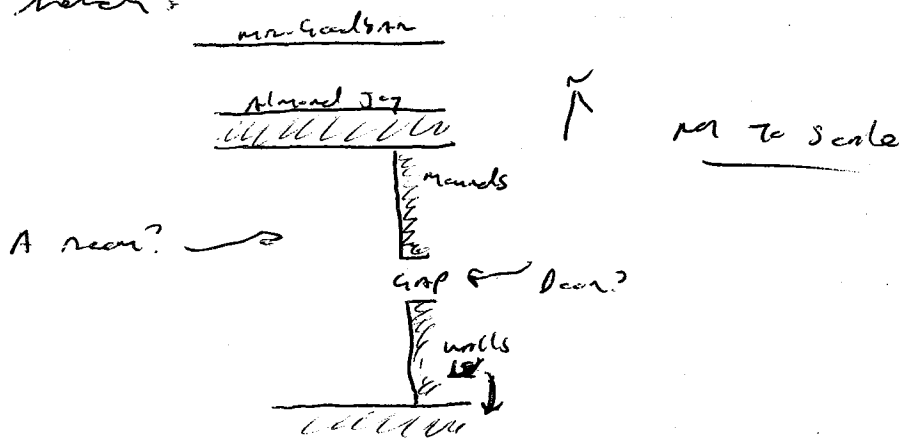 Sketch:
Mr. Goodbar
Almond Joy
N
Not To Scale
Mounds
A room?
GAP
Door?
walls